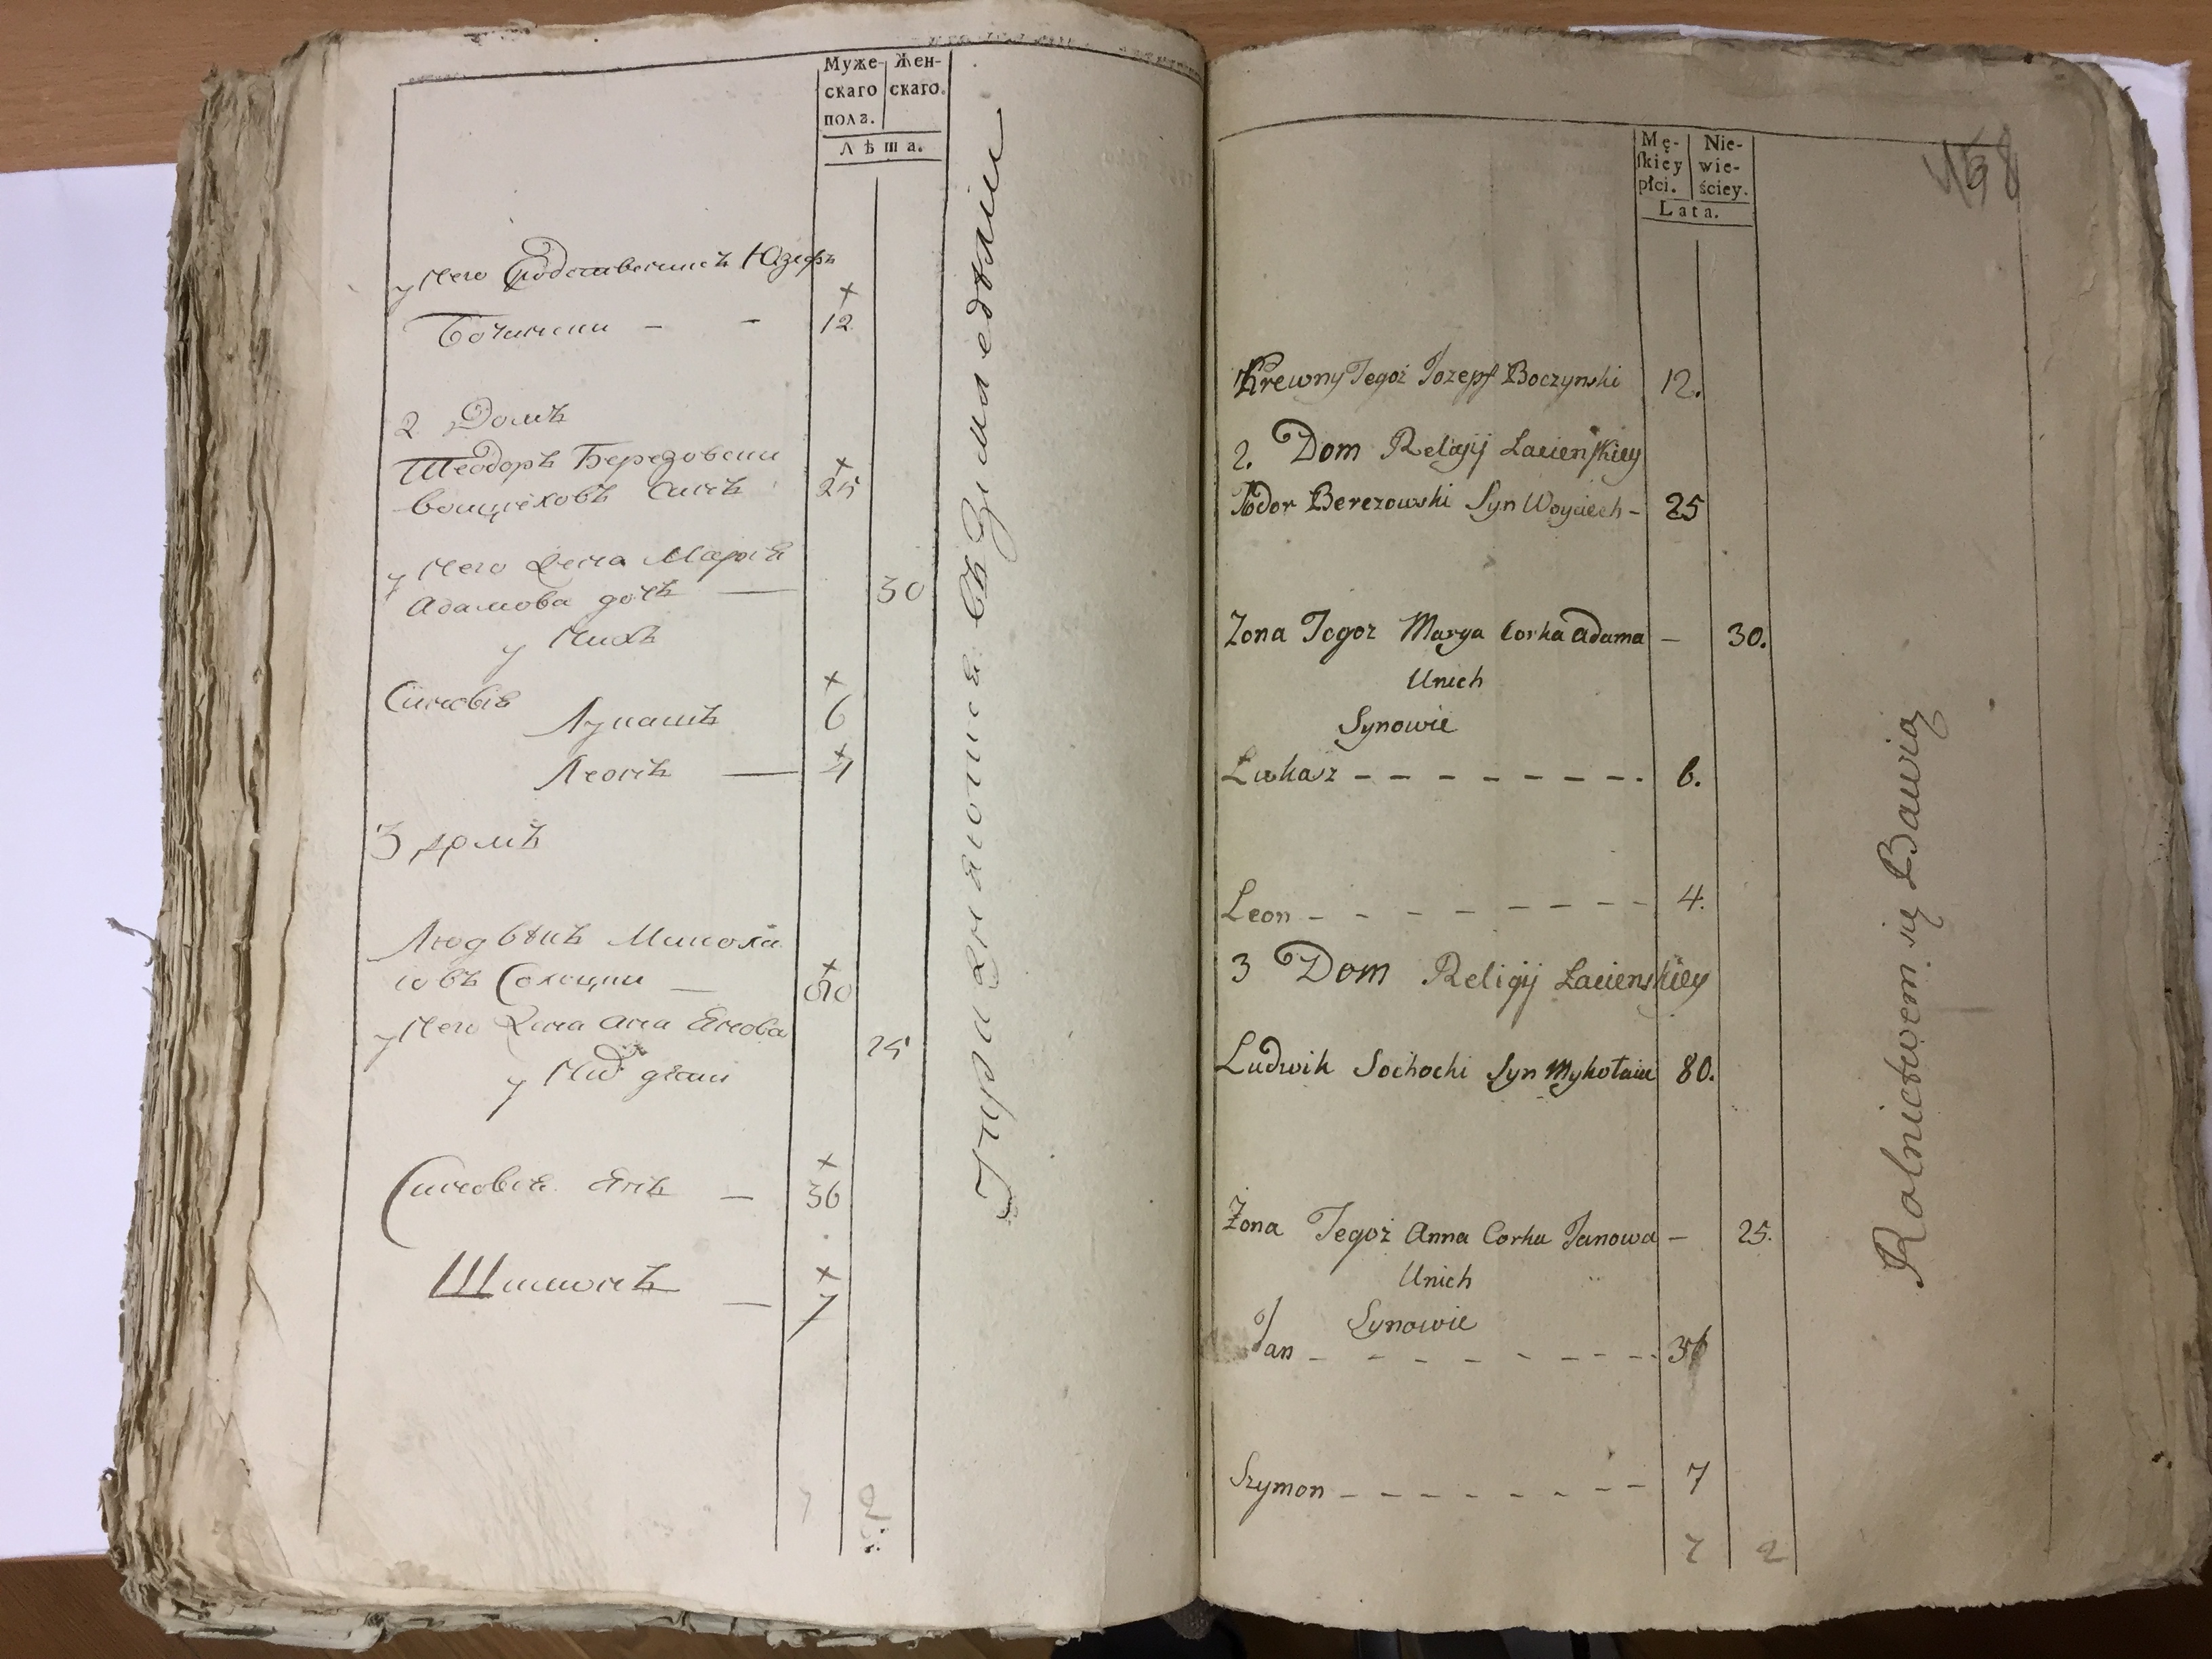 Муже-
скаго
пола.
Жен-
скаго.
Лѣта.
у Него Сродственникъ Юзефъ
Бочински – – 12
2 Домъ
Теодоръ Березовски
Войцѣховъ Синъ 25
у Него Жена Марія
Адамова дочь — 30
у Нихъ
Синовія
Лукашъ 6
Леонъ — 4
3 домъ
Людвикъ Микола
іовъ Сохоцки — 80
у Него Жена Ана Янова 25
у Них дѣти
Синовія Янъ — 36
Шимонъ — 7
7 2
упражняются въ Земледѣлии
Mę-
ſkiey
płci.
Nie-
wie-
ściey.
Lata.
Krewny Tegoż Jozepf Boczynski 12.
2. Dom Religij Łacienſkiey
Todor Berezowski Syn Woyciech – 25
Zona Tegoz Marya Corka Adama – 30.
Unich
Synowie
Łukasz – – – – – – – – 6.
Leon – – – – – – – – 4.
3 Dom Religij Łacienskiey
Ludwik Sochocki Syn Mykołaia 80.
Żona Tegoż Anna Corka Janowa – 25.
Unich
Synowie
Jan – – – – – – – – 36
Szymon – – – – – – – – 7
7 2
Rolnictwem się Bawią